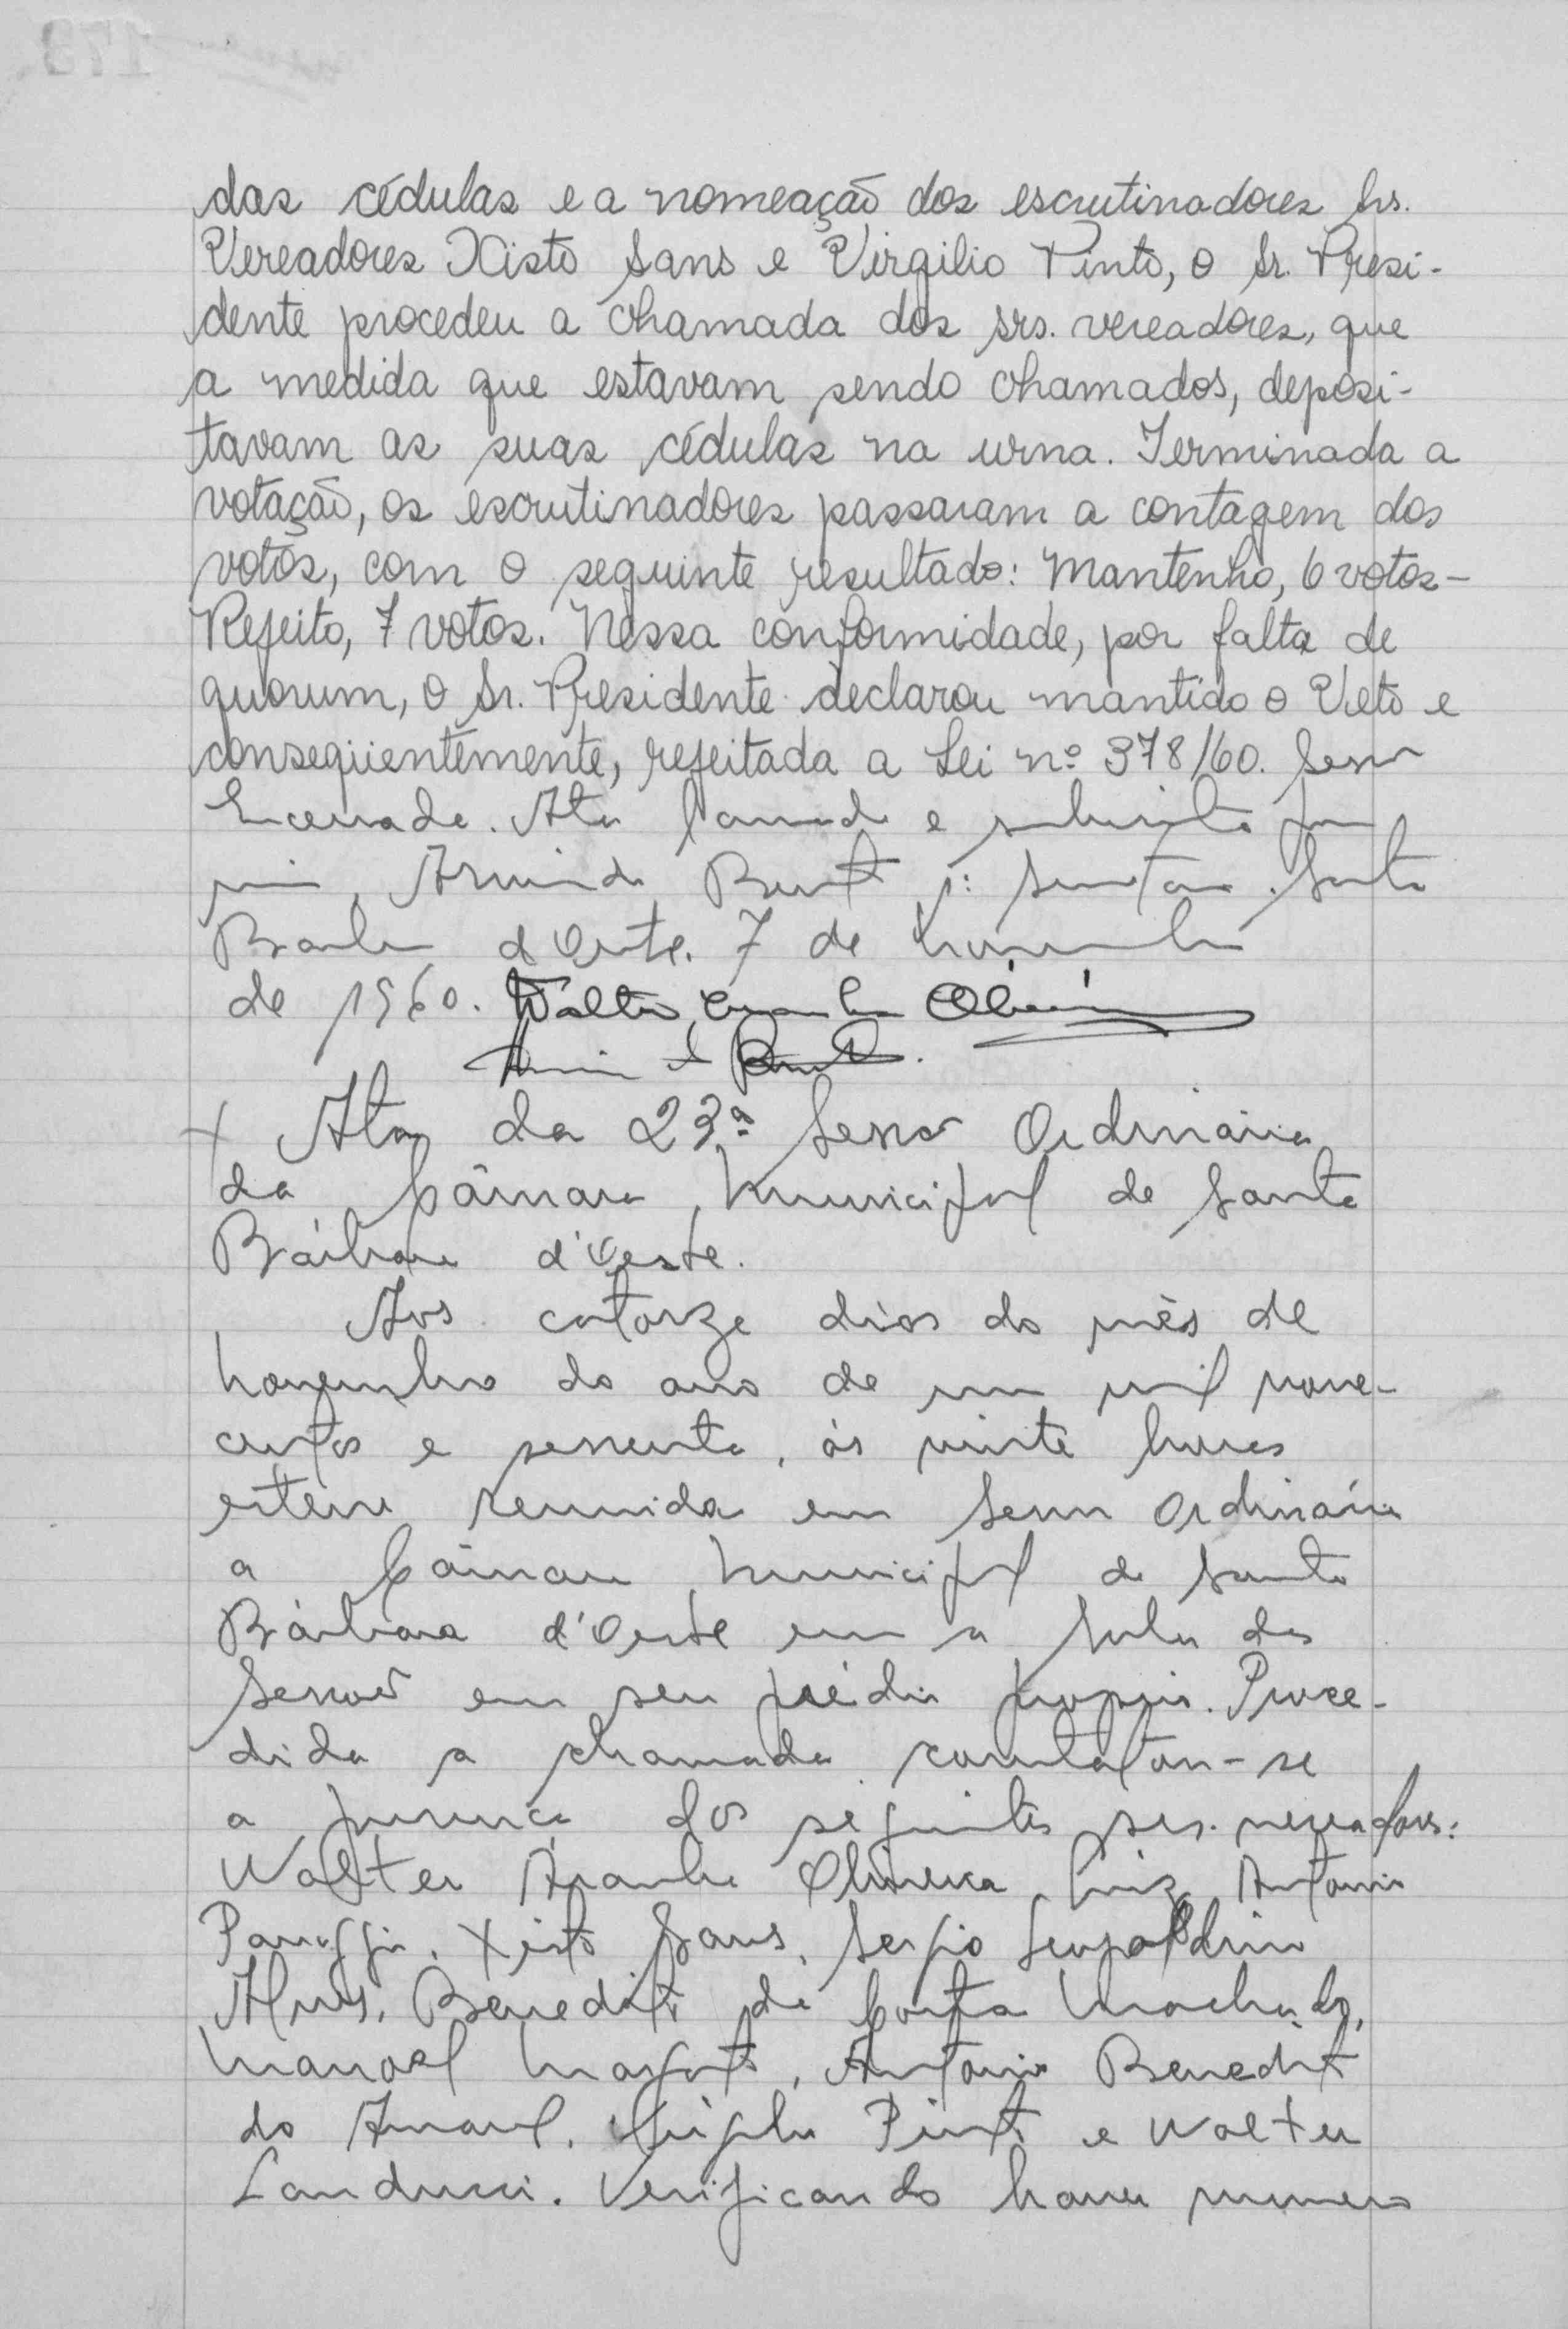 das cédulas e a nomeação dos escrutinadores Srs.
Vereadores Xisto Sans e Virgilio Pinto, o Sr. Presi-
dente procedeu a chamada dos srs. vereadores, que
a medida que estavam sendo chamados, deposi-
tavam as suas cédulas na urna. Terminada a
votação, os escrutinadores passaram a contagem dos
votos, com o seguinte resultado: Mantenho, 6 votos -
Rejeito, 7 votos. Nessa conformidade, por falta de
quorum, o Sr. Presidente declarou mantido o Veto e
conseqüentemente, rejeitada a Lei nº 378/60. Sessão
Encerrada. Ata lavrada e subscrita por
mim, Armindo 1º Secretário. Santa
Barbara d'Oeste. 7 de Novembro
de 1960. Walter Aranha Oliveira
+ Ata da 23ª Sessão Ordinária
da Câmara Municipal de Santa
Bárbara d'Oeste.
Aos catorze dias do mês de
Novembro do ano de um mil nove-
centos e sessenta, às vinte horas
esteve reunida em Sessão Ordinária
a Câmara Municipal de Santa
Bárbara d'Oeste em a Sala das
Sessões em seu prédio proprio. Proce-
dida a chamada constatou-se
a presença dos seguintes srs. vereadores:
Walter Aranha Oliveira, Luiz Antonio
Panaggio, Xisto Sans, Sergio Leopoldino
Alves, Benedito da Costa Machado,
Manoel, Antonio Benedito
do Amaral, Virgilio Pinto e Walter
Landucci. Verificando haver numero